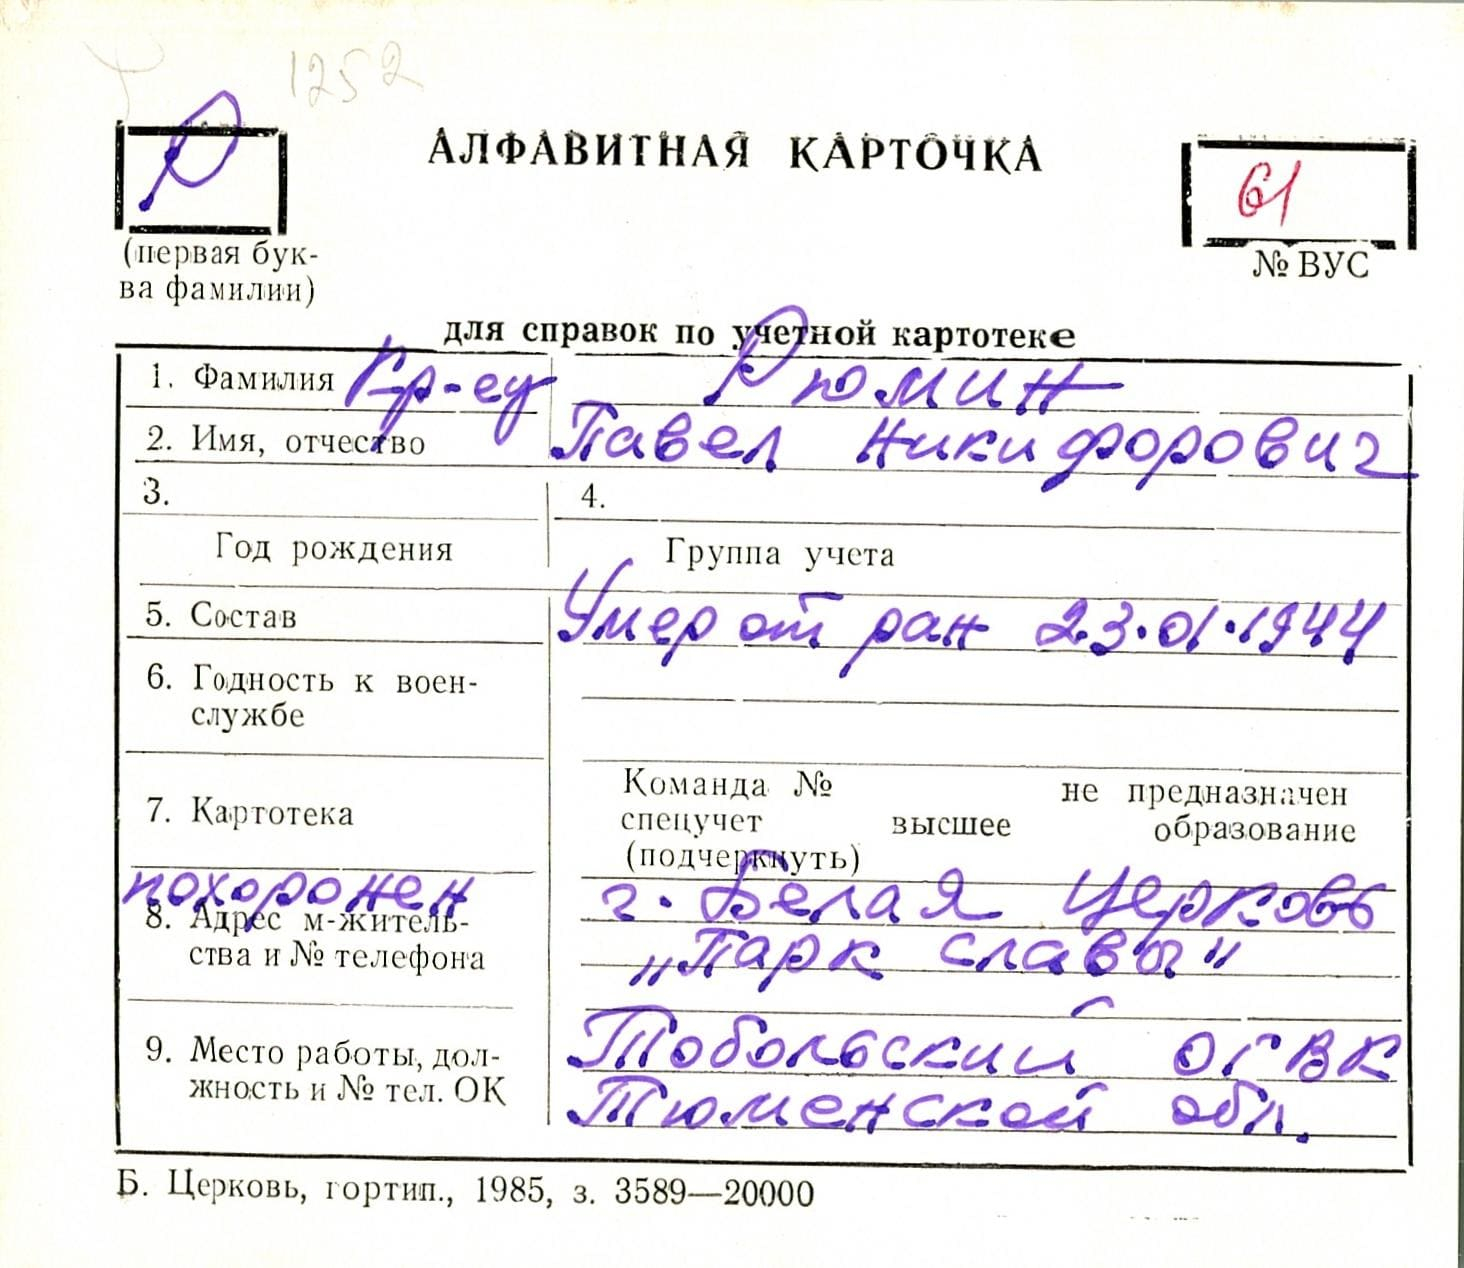 1252
Р
АЛФАВИТНАЯ КАРТОЧКА
61
(первая бук-
ва фамилии)
№ ВУС
для справок по учетной картотеке
1. Фамилия Кр-ец Рюмин
2. Имя, отчество Павел Никифорович
3. 4.
Год рождения Группа учета
5. Состав Умер от ран 23.01.1944
6. Годность к воен-
службе
Команда № не предназначен
7. Картотека спецучет высшее образование
(подчеркнуть)
похоронен г. Белая Церковь
8. Адрес м-житель-
ства и № телефона „Парк славы"
9. Место работы, дол- Тобольский ОГВК
жность и № тел. ОК Тюменской обл.
Б. Церковь, гортип., 1985, з. 3589—20000